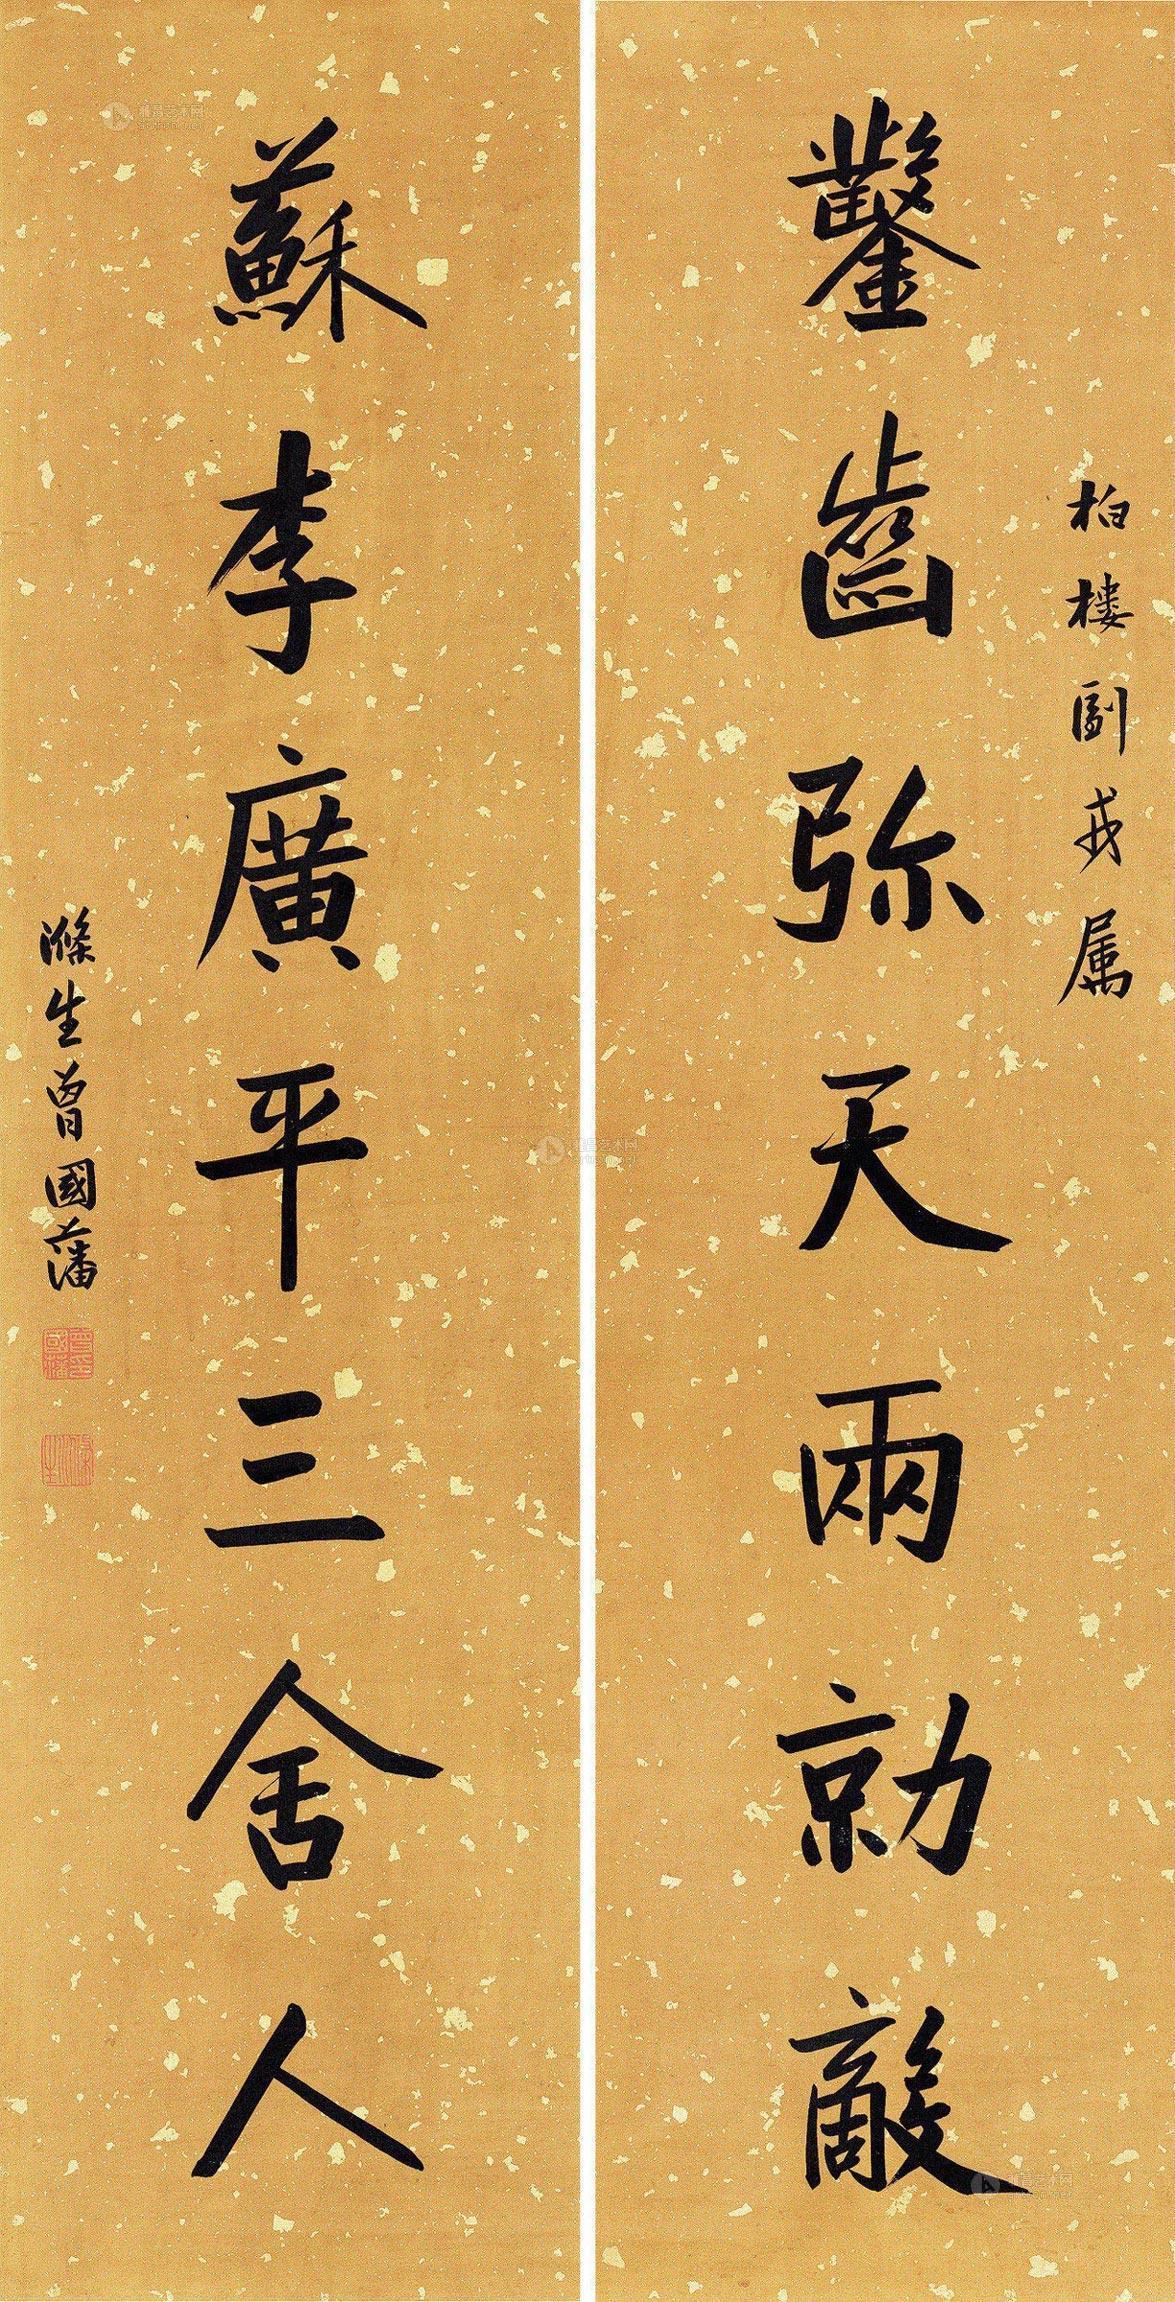 柏樓副戎属
鑿齒弥天兩勍敵
蘇李廣平三舍人
滌生曾國藩